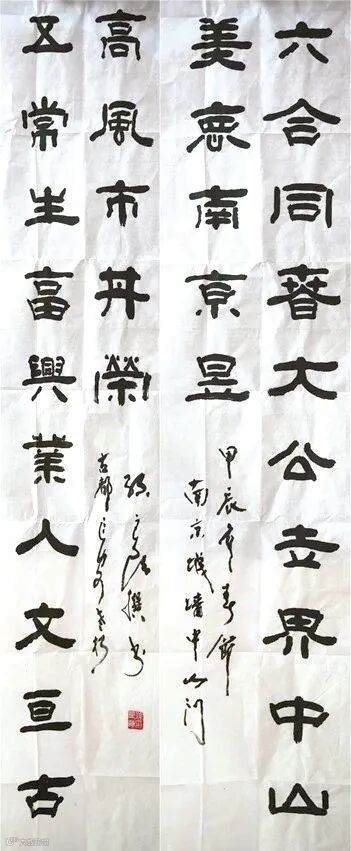 六合同春大公界中山
美意南京昱
甲辰年春節
南京城墻中山門
五常生富興業人文亘古
高風市丹榮
撰书
古都